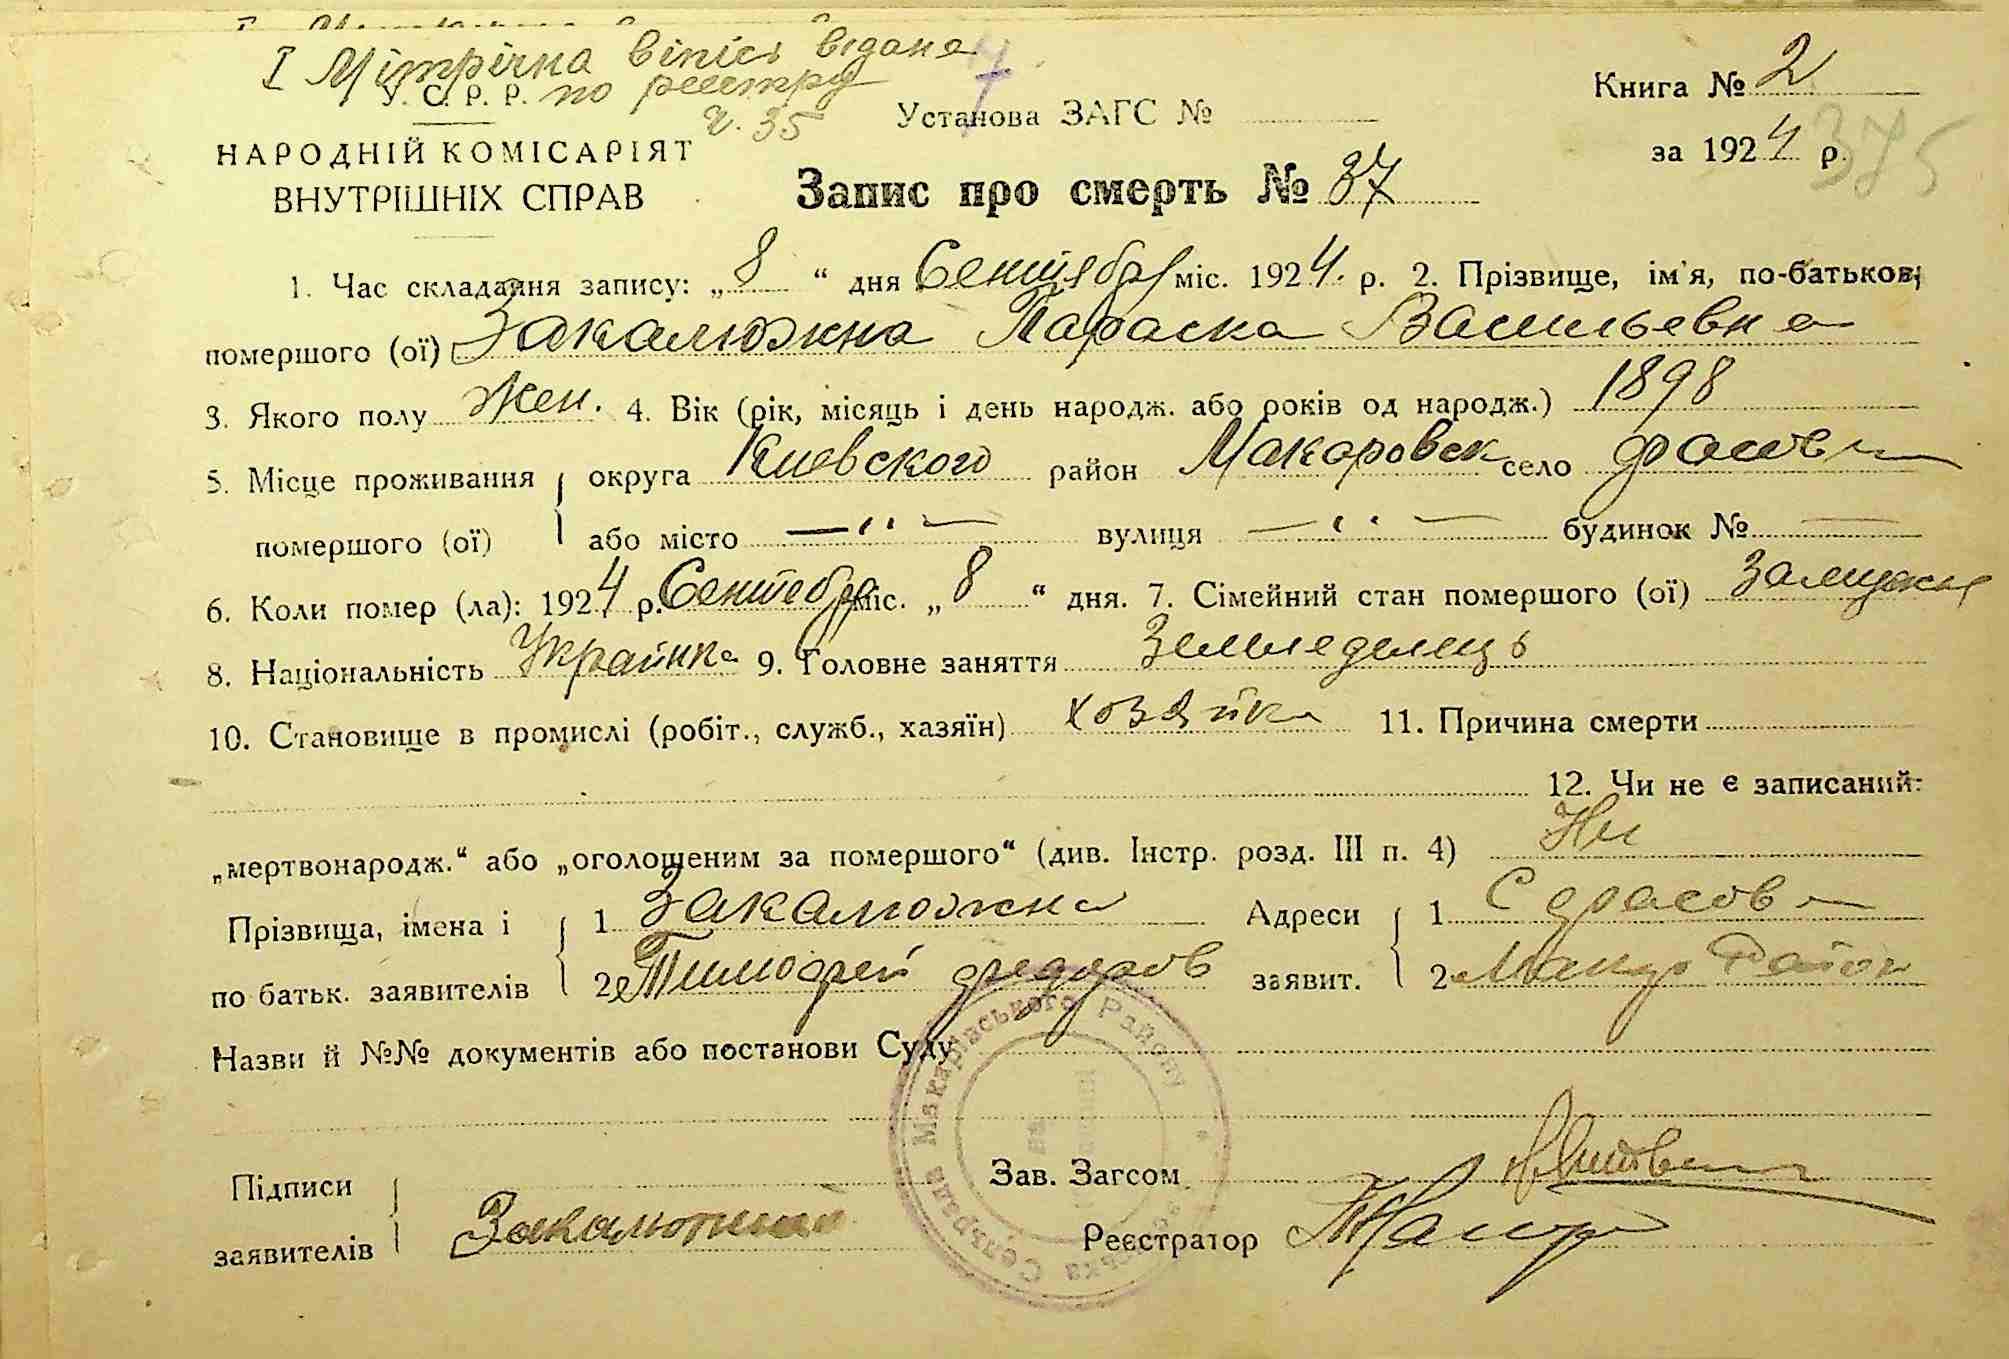 І Мітрічна віпісь відана
У. С. Р. Р. по реестру
ч. 35
Установа ЗАГС №
Книга № 2
за 1924 р.
375
НАРОДНІЙ КОМІСАРІЯТ
ВНУТРІШНІХ СПРАВ
Запис про смерть № 37
1. Час складання запису: „8“ дня Сентября міс. 1924. р. 2. Прізвище, ім'я, по-батькові
помершого (ої) Закалюжна Параска Васильевна
3. Якого полу жен. 4. Вік (рік, місяць і день народж. або років од народж.) 1898
5. Місце проживання округа Киевского район Макаровск село Фасова
помершого (ої) або місто — „ — вулиця — „ — будинок № —
6. Коли помер (ла): 1924 р. Сентебра міс. „8“ дня. 7. Сімейний стан помершого (ої) Замужня
8. Національність Украинка 9. Головне заняття Земледелець
10. Становище в промислі (робіт., служб., хазяїн) хозяйка 11. Причина смерти
12. Чи не є записаний:
„мертвонародж.“ або „оголошеним за помершого“ (див. Інстр. розд. III п. 4) Ни
Прізвища, імена і 1 Закалюжна Адреси 1 С Фасова
по батьк. заявителів 2 Тимофей Федоров заявит. 2 Макар Район
Назви й №№ документів або постанови Суду
Макарівського Району
Сельрада
Підписи
Зав. Загсом
заявителів Закалюжный Реєстратор